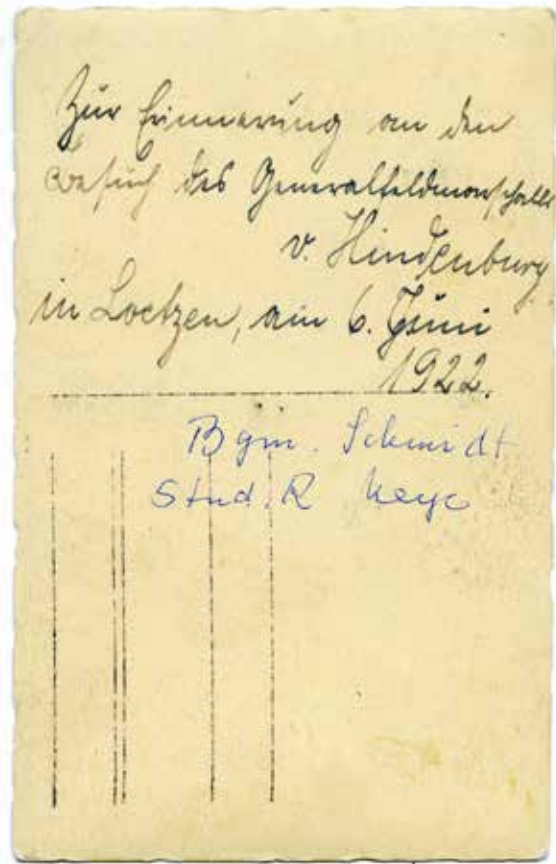 Zur Erinnerung an den
Besuch des Generalfeldmarschalls
v. Hindenburg
in Loetzen, am 6. Juni
1922.
Bgm. Schmidt
Stud. R